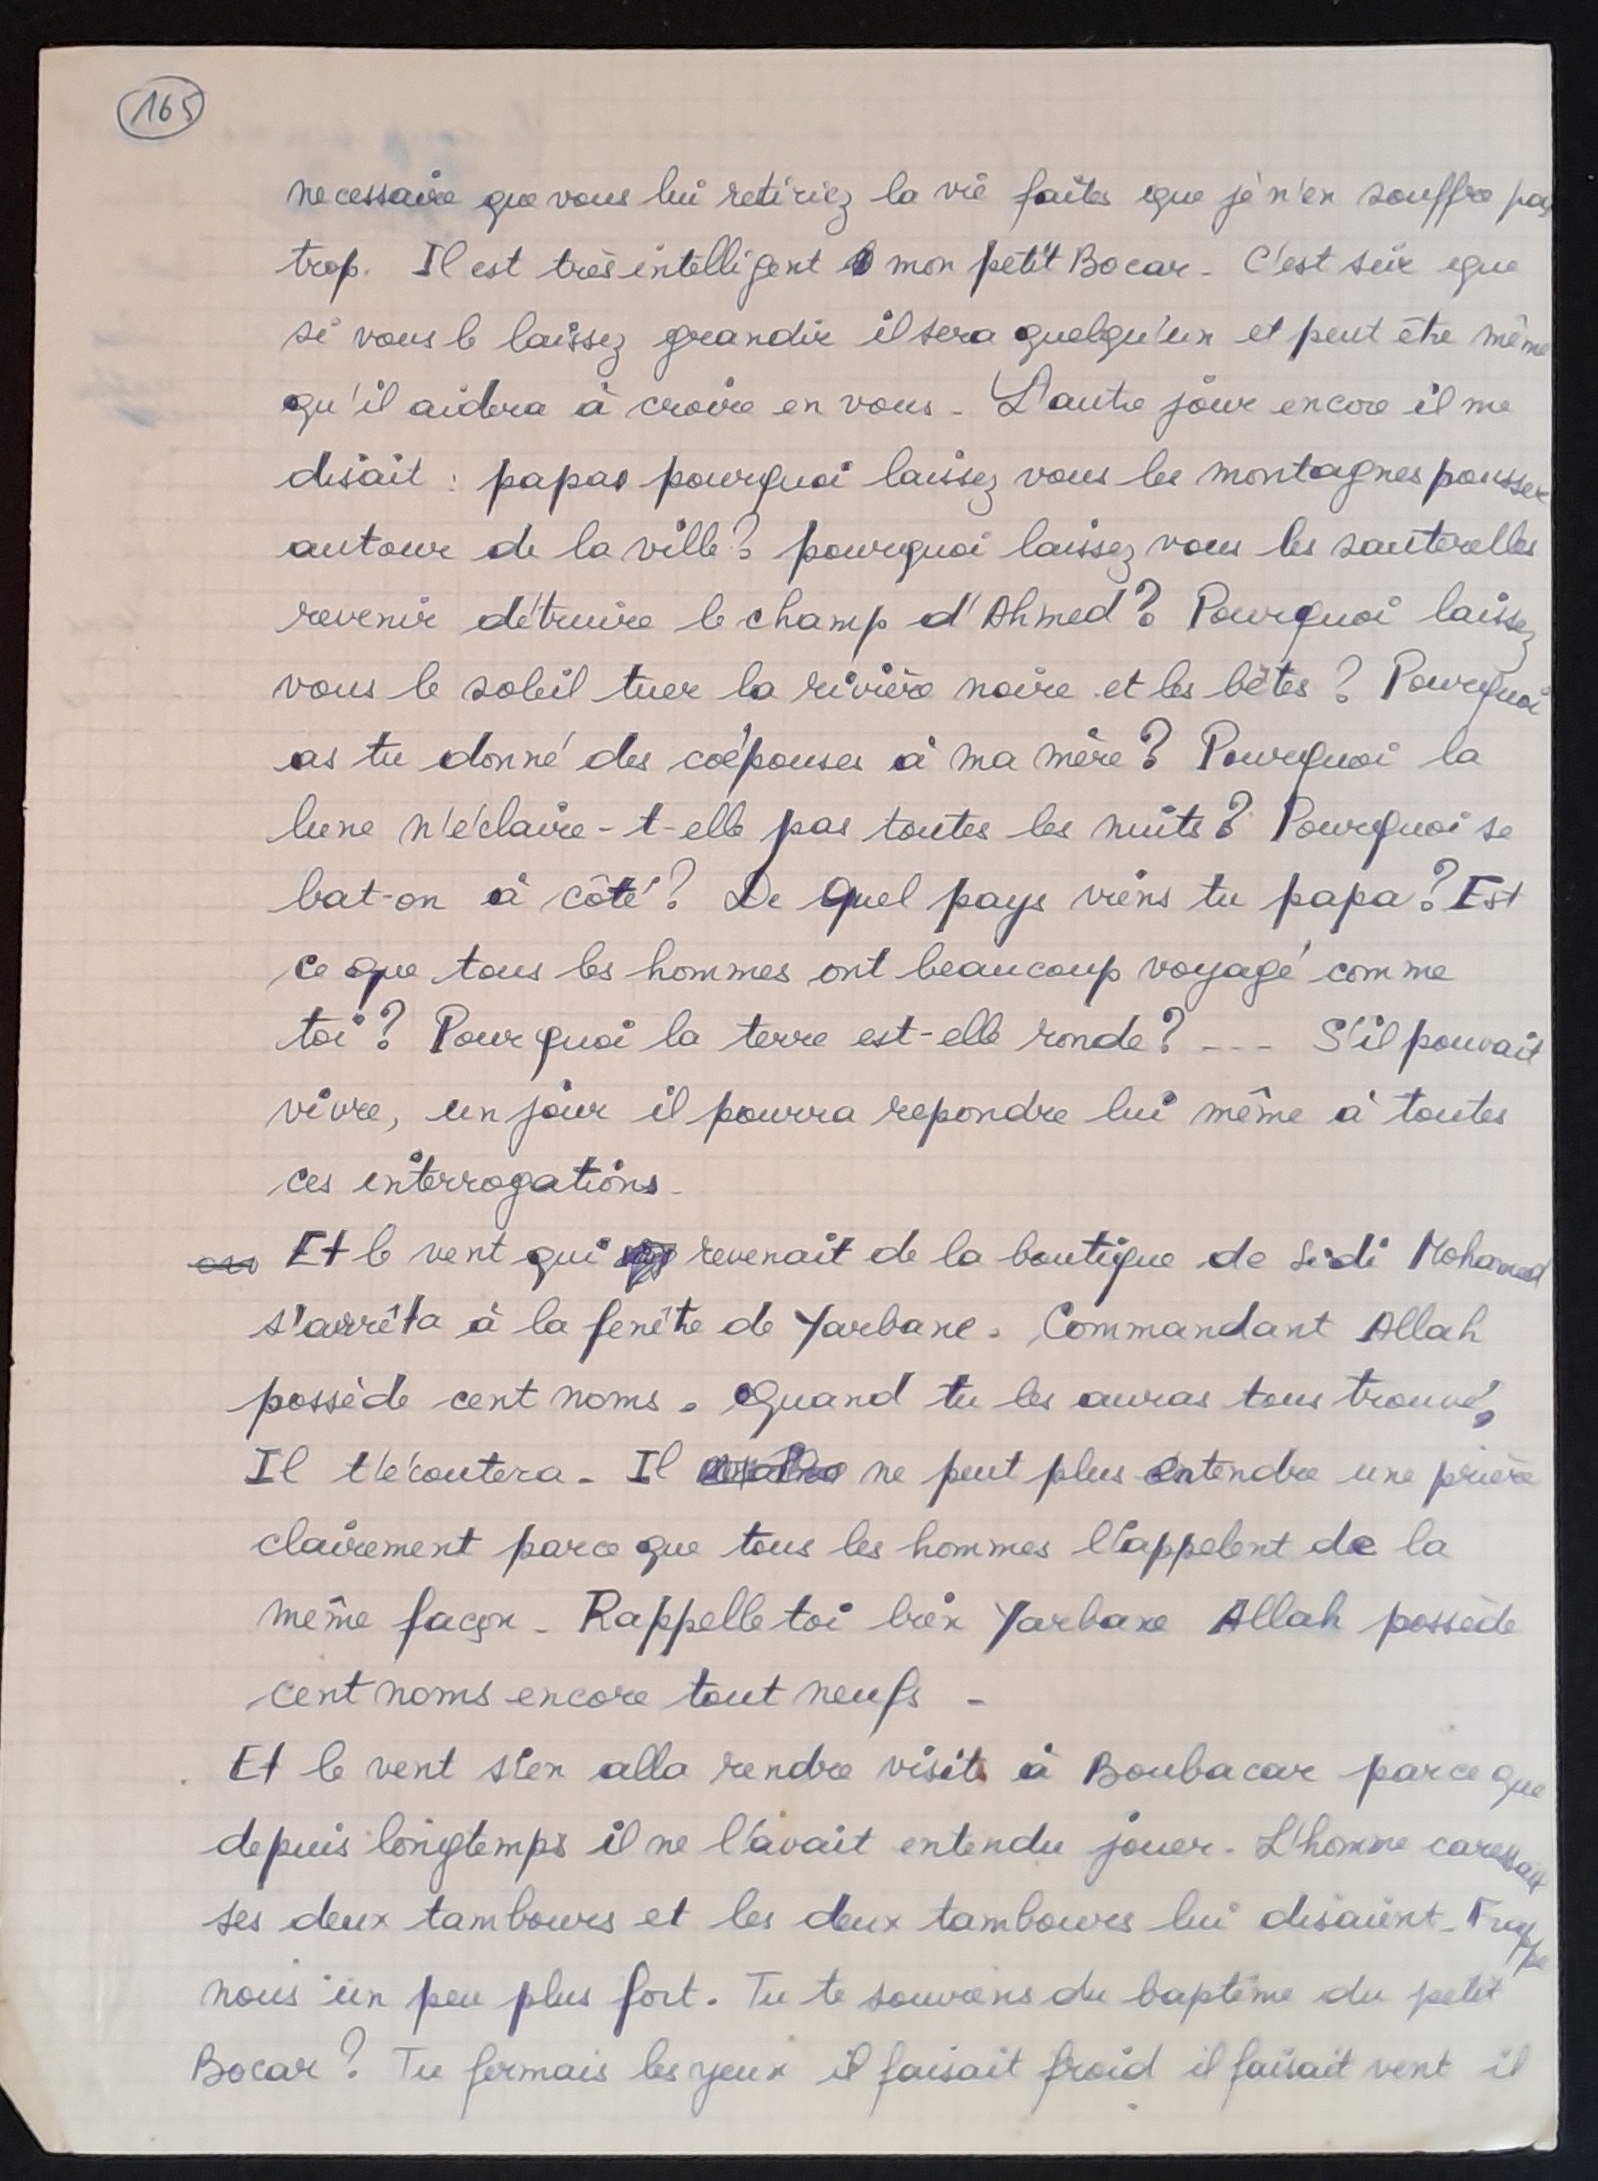 165
necessaire que vous lui retiriez la vie faites que je n'en souffre pas
trop. Il est très intelligent mon petit Bocar - C'est sûr que
si vous le laissez grandir il sera quelqu'un et peut être même
qu'il aidera à croire en vous - L'autre jour encore il me
disait : papa pourquoi laissez vous les montagnes pousser
autour de la ville ? pourquoi laissez vous les sauterelles
revenir détruire le champ d'Ahmed ? Pourquoi laissez
vous le soleil tuer la rivière noire et les bêtes ? Pourquoi
as tu donné des coépouses à ma mère ? Pourquoi la
lune n'éclaire-t-elle pas toutes les nuits ? Pourquoi se
bat-on à côté ? De quel pays viens tu papa ? Est
ce que tous les hommes ont beaucoup voyagé comme
toi ? Pourquoi la terre est-elle ronde ? --- S'il pouvait
vivre, un jour il pourra repondre lui même à toutes
ces interrogations -
Et le vent qui revenait de la boutique de Sidi Mohamed
s'arrêta à la fenêtre de Yarbane. Commandant Allah
possède cent noms. Quand tu les auras tous trouvé,
Il t'écoutera - Il ne peut plus entendre une prière
clairement parce que tous les hommes l'appelent de la
même façon - Rappelle toi bien Yarbane Allah possède
cent noms encore tout neufs -
Et le vent s'en alla rendre visite à Boubacar parce que
depuis longtemps il ne l'avait entendu jouer - L'homme caressait
ses deux tambours et les deux tambours lui disaient - Frappe
nous un peu plus fort. Tu te souviens du baptême du petit
Bocar ? Tu fermais les yeux il faisait froid il faisait vent il